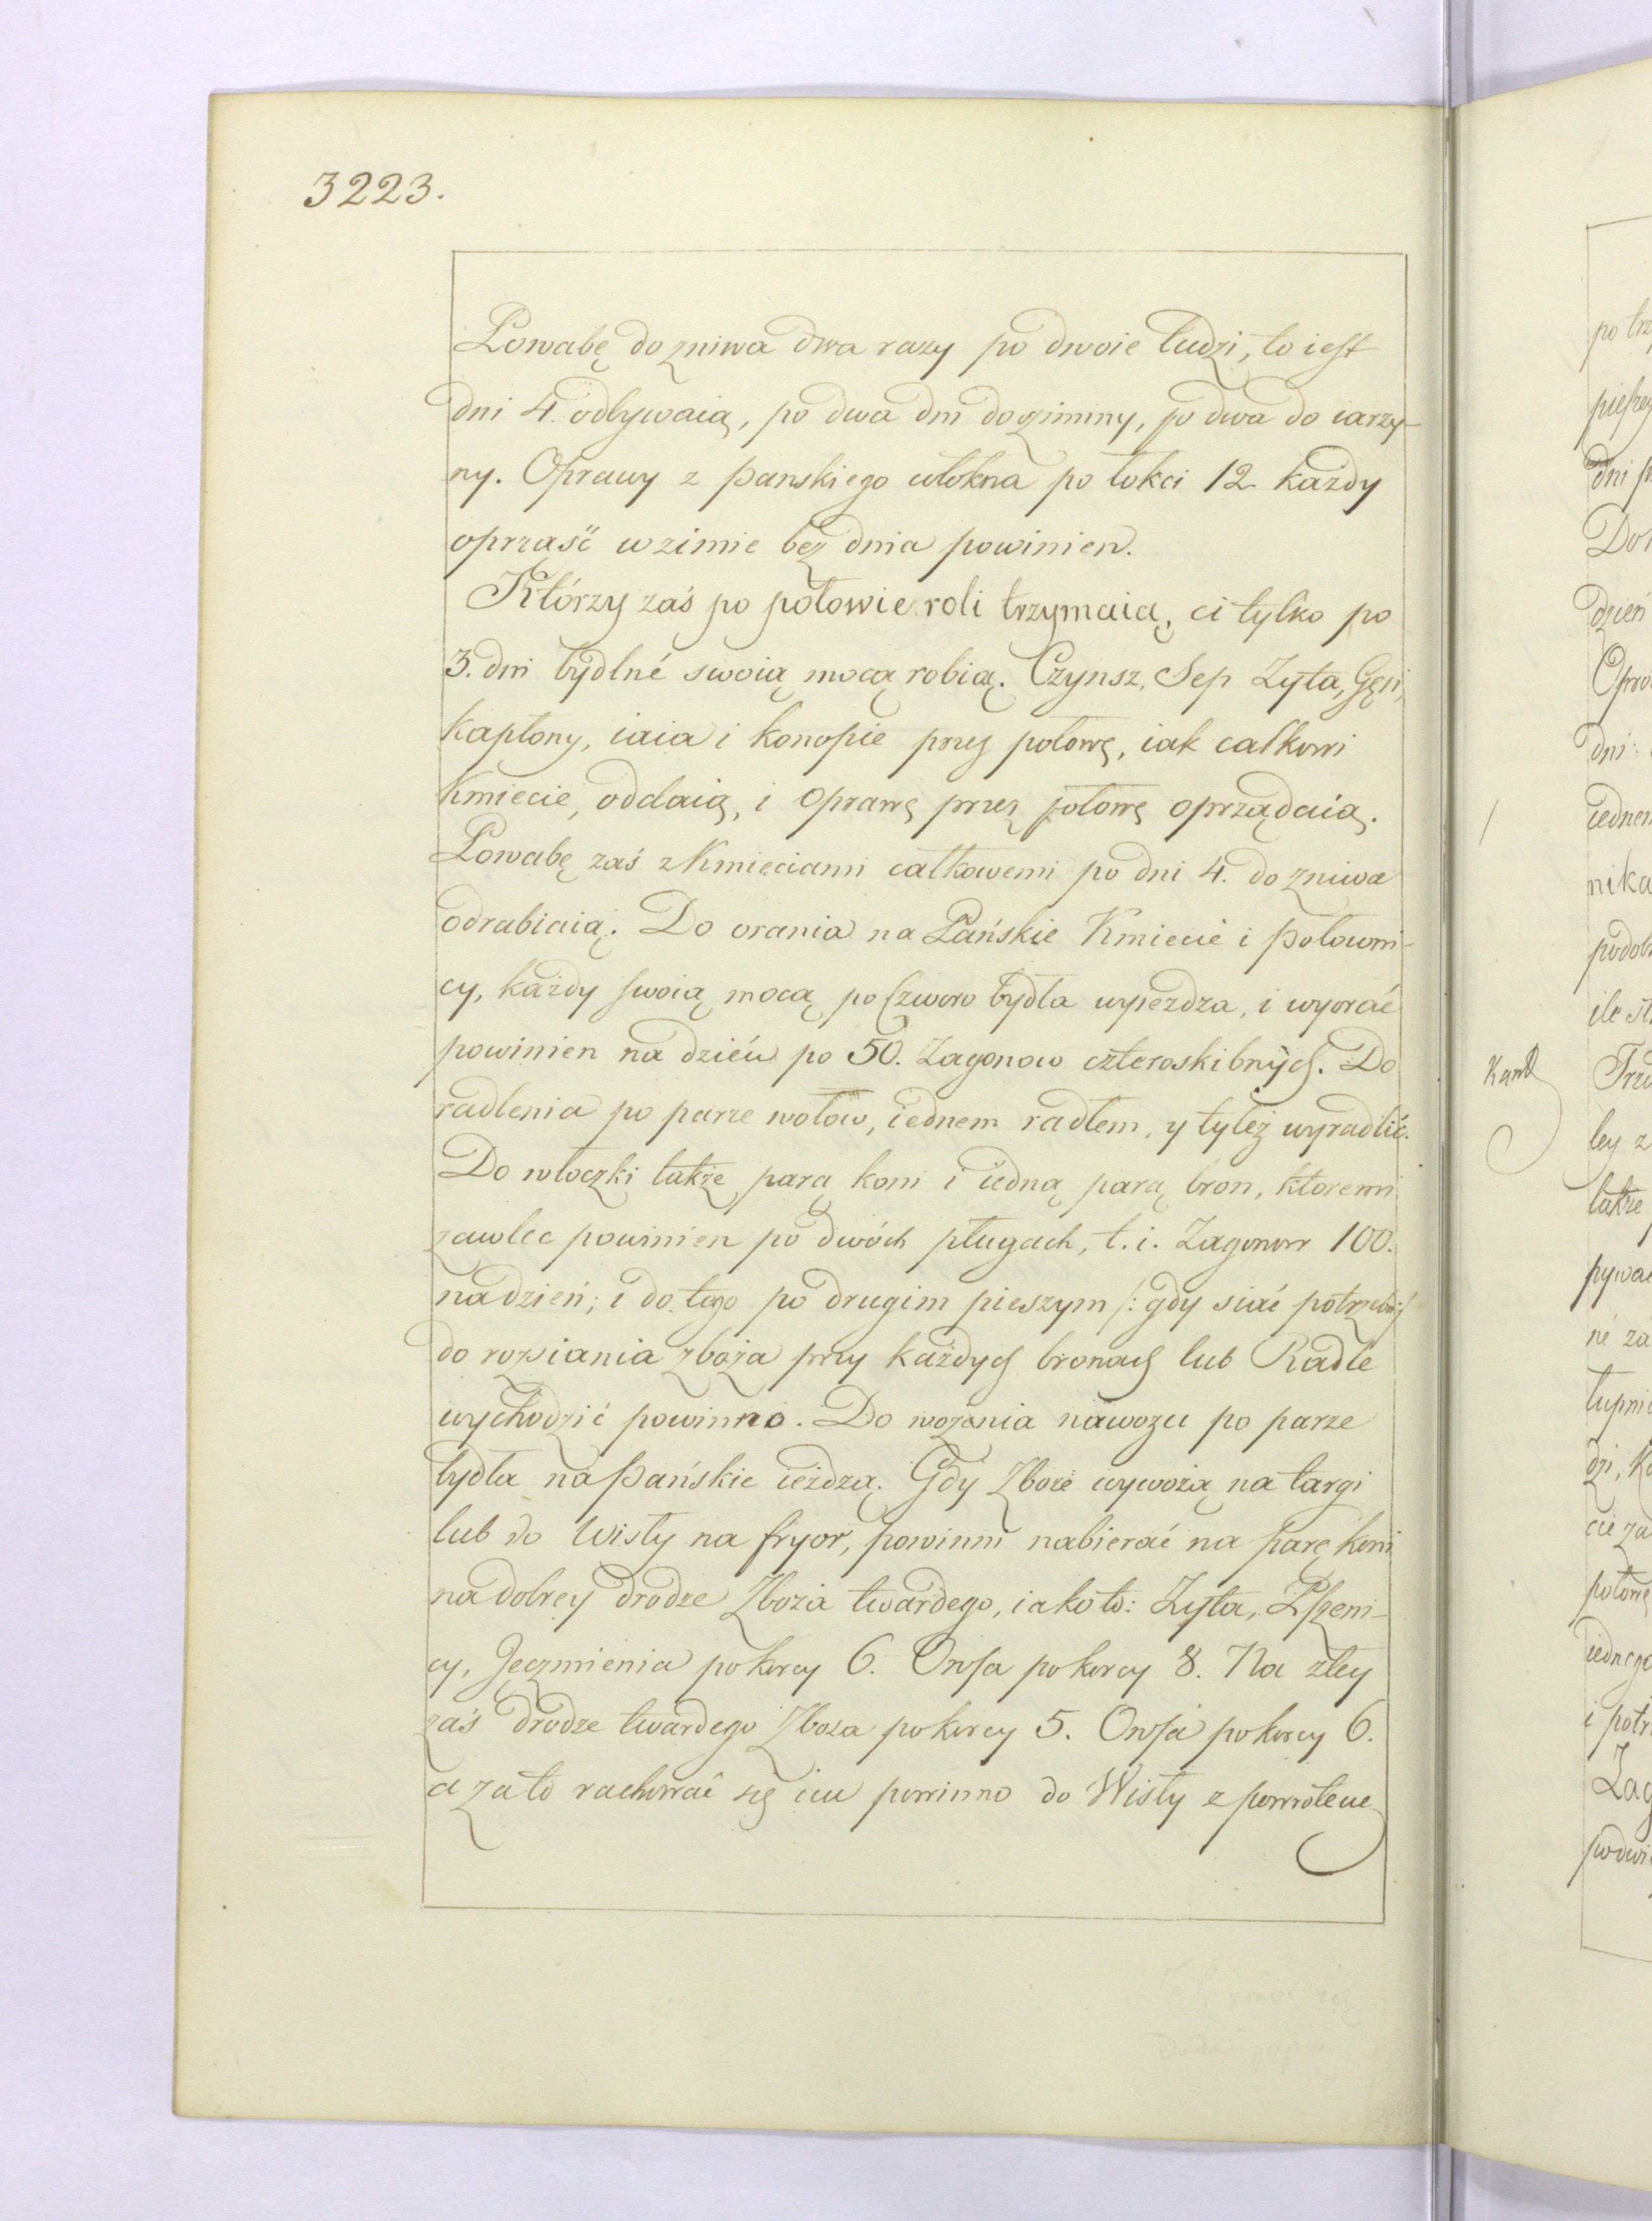 3223.
Powabę do zniwa dwa razy po dwoie ludzi, to iest
dni 4. odbywaią, po dwa dni do ziminy, po dwa do iarzy-
ny. Oprawy z panskiego włokna po łokci 12 każdy
oprzaść w zimie bez dnia powinien.
Którzy zaś po połowie roli trzymaią, ci tylko po
3. dni bydlné swoią mocą robią. Czynsz, Sep Zyta, Gęsi,
kapłony, iaia i konopie przez połowę, iak całkowi
Kmiecie, oddaią, i oprawę przez połowę oprządaią.
Powabę zaś z Kmieciami całkowemi po dni 4. do zniwa
odrabiaią. Do orania na Pańskie Kmiecie i połowni-
cy, każdy swoią mocą po czworo bydła wyieżdza, i wyorać
powinien na dzień po 50. Zagonow czteroskibnych. Do
radlenia po parze wołow, iednem radłem, y tyleż wyradlić.
Do włoczki także parą koni i iedną parą bron, ktoremi
zawlec powinien po dwóch pługach, t. i. Zagonow 100.
na dzień; i do tego po drugim pieszym /: gdy siać potrzeba :/
do rozsiania zboża przy każdych bronach lub Radle
wychodzić powinno. Do wożenia nawozu po parze
bydła na Pańskie ieżdzą. Gdy Zboże wywożą na targi
lub do Wisły na fryor, powinni nabierać na parę koni
na dobrey drodze Zboża twardego, iako to: Zyta, Pszeni-
cy, Jęczmienia po korcy 6. Owsa po korcy 8. Na złey
zaś drodze twardego Zboża po korcy 5. Owsa po korcy 6.
a za to rachować się im powinno do Wisły z powrotem